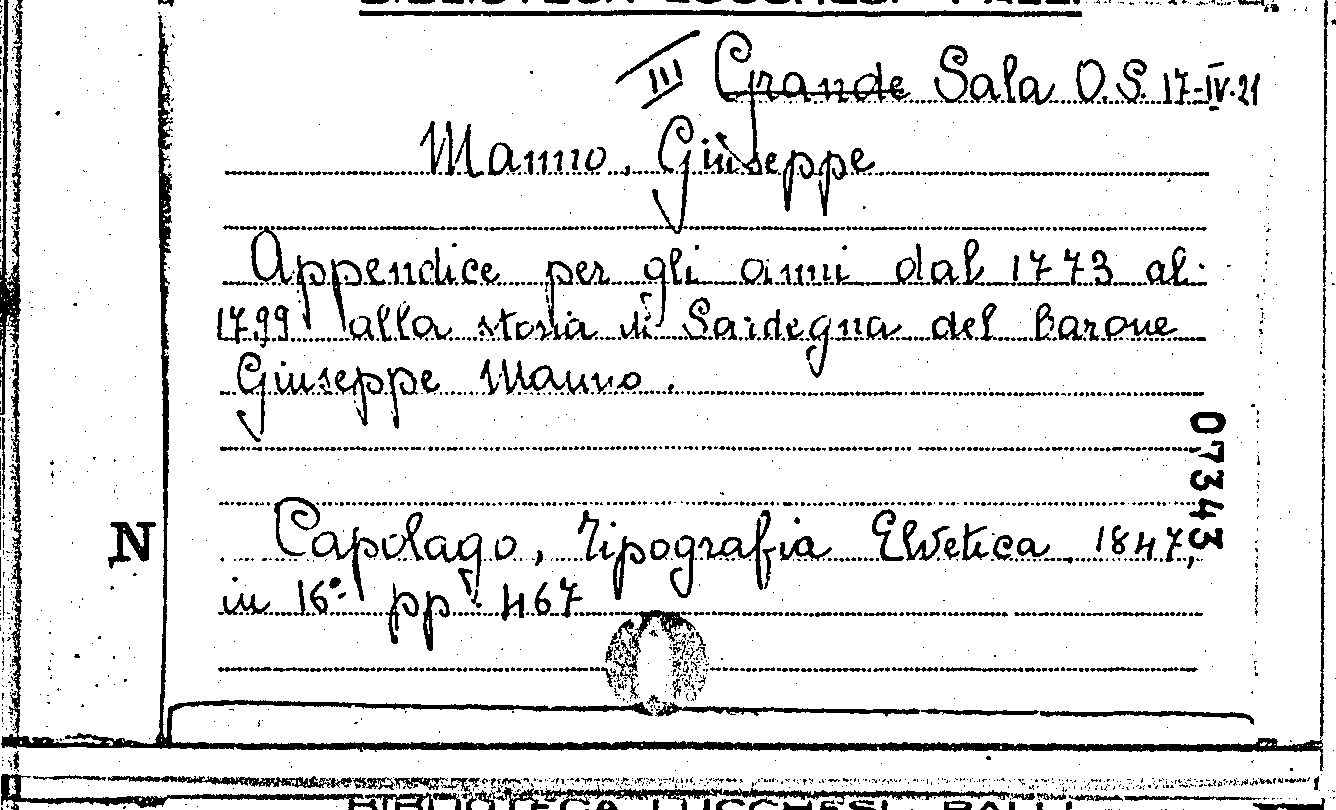 BIBLIOTECA LUCCHESI PALLI
III Grande Sala O.S. 17-IV-21
Manno, Giuseppe
Appendice per gli anni dal 1773 al
1799 alla storia di Sardegna del barone
Giuseppe Manno.
07343
N
Capolago, Tipografia Elvetica, 1847,
in 16° pp. 467
BIBLIOTECA LUCCHESI PALLI